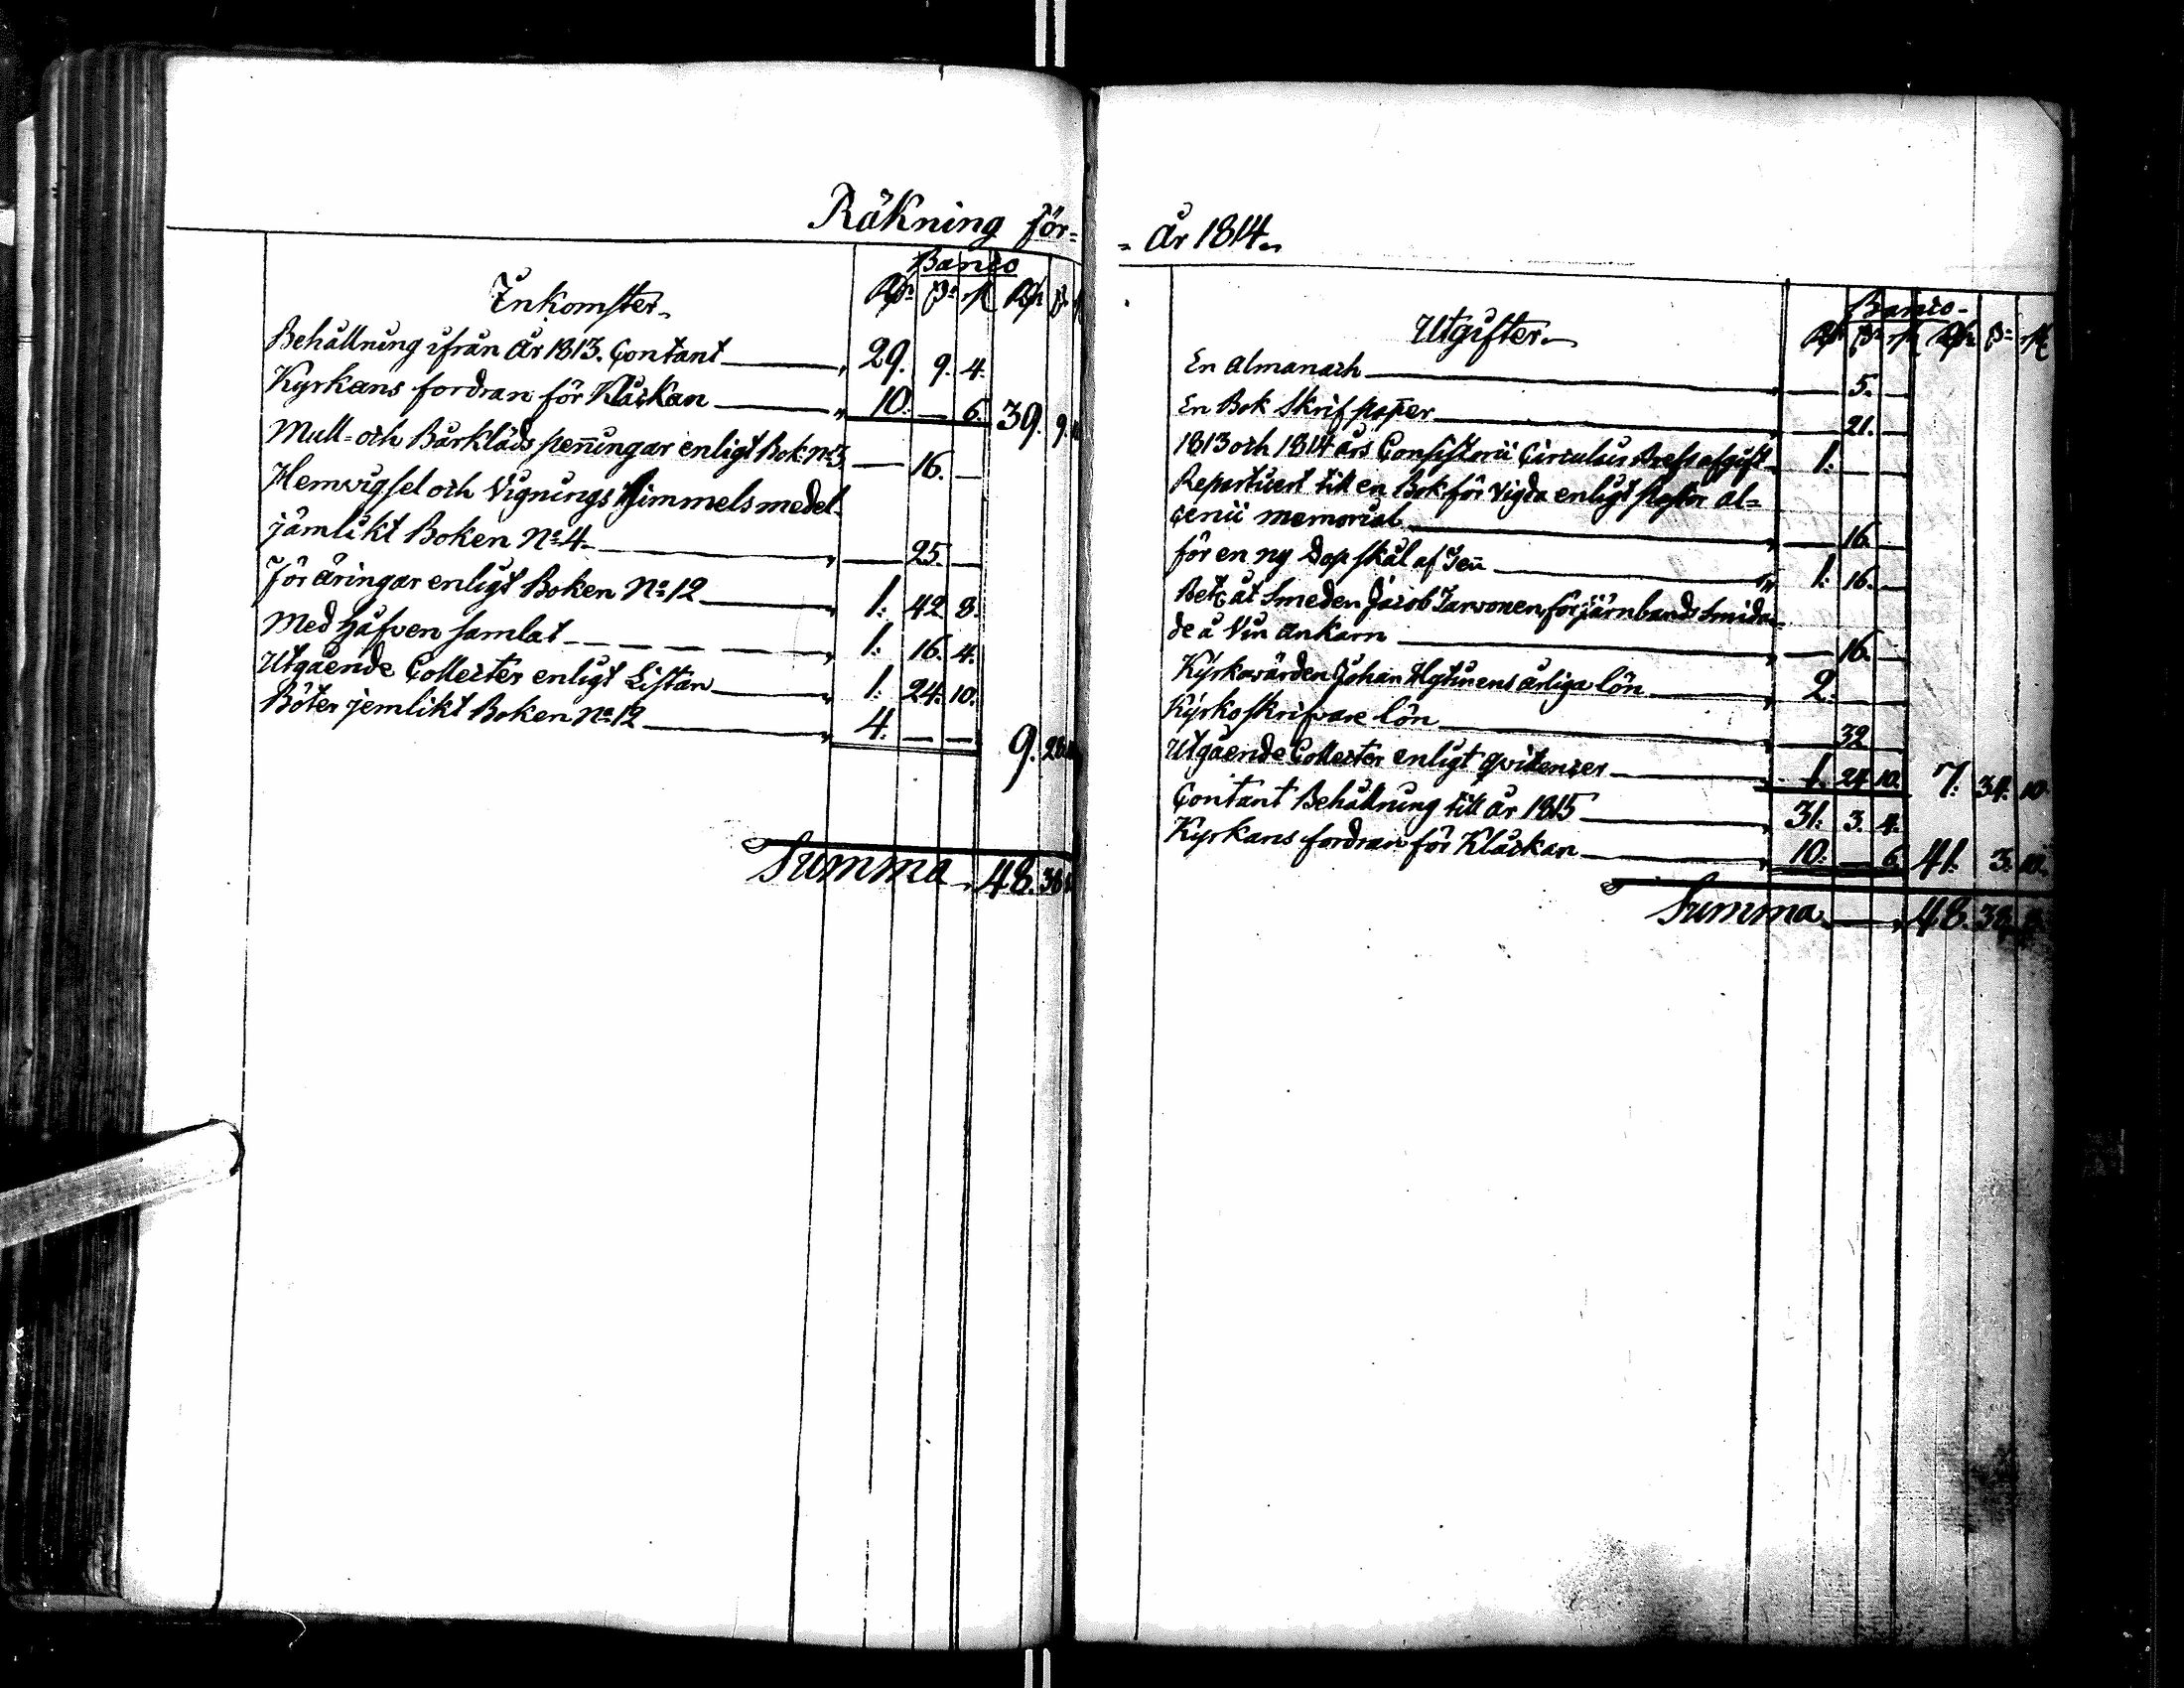 Räkning för=
Banco
Inkomster.
Behållning ifrån År 1813. Contant 29. 9. 4.
Kyrkans fordran för Kläckan 10. — 6. 39. 9.
Mull= och Bårkläds peñingar enligt Bok. No 3. — 16. —
Hemvigsel och Vignings Himmels medel
jämlikt Boken No 4. — 25. —
För åringar enligt Boken No 12 1: 42 8.
Med Håfven samlat 1: 16. 4.
Utgående Collecter enligt Listan 1: 24. 10.
Böter jemlikt Boken No 12 4. — — 9. 28.
Summa 48. 38
= År 1814.
Banco
Utgifter.
En Almanach — 5. —
En Bok Skrif papper — 21. —
1813 och 1814 års Consistorii Circulair Brefs afgift 1. — —
Reparticert till en Bok för Vigda enligt Pastor Al=
genii memorial — 16. —
för en ny Dop skål af Teñ 1: 16. —
Bet: åt Smeden Jacob Tarvonen för järnbands Smidan=
de å Vin ankarn — 16. —
Kyrkovärden Johan Hytinens årliga lön 2. — —
Kyrkoskrifvare lön — 32 —
Utgående Collecter enligt qvitencer 1. 24. 10. 7: 34. 10.
Contant Behållning till år 1815 31: 3. 4.
Kyrkans fordran för Kläckan 10: — 6. 41. 3. 10.
Summa 48. 38. 8.